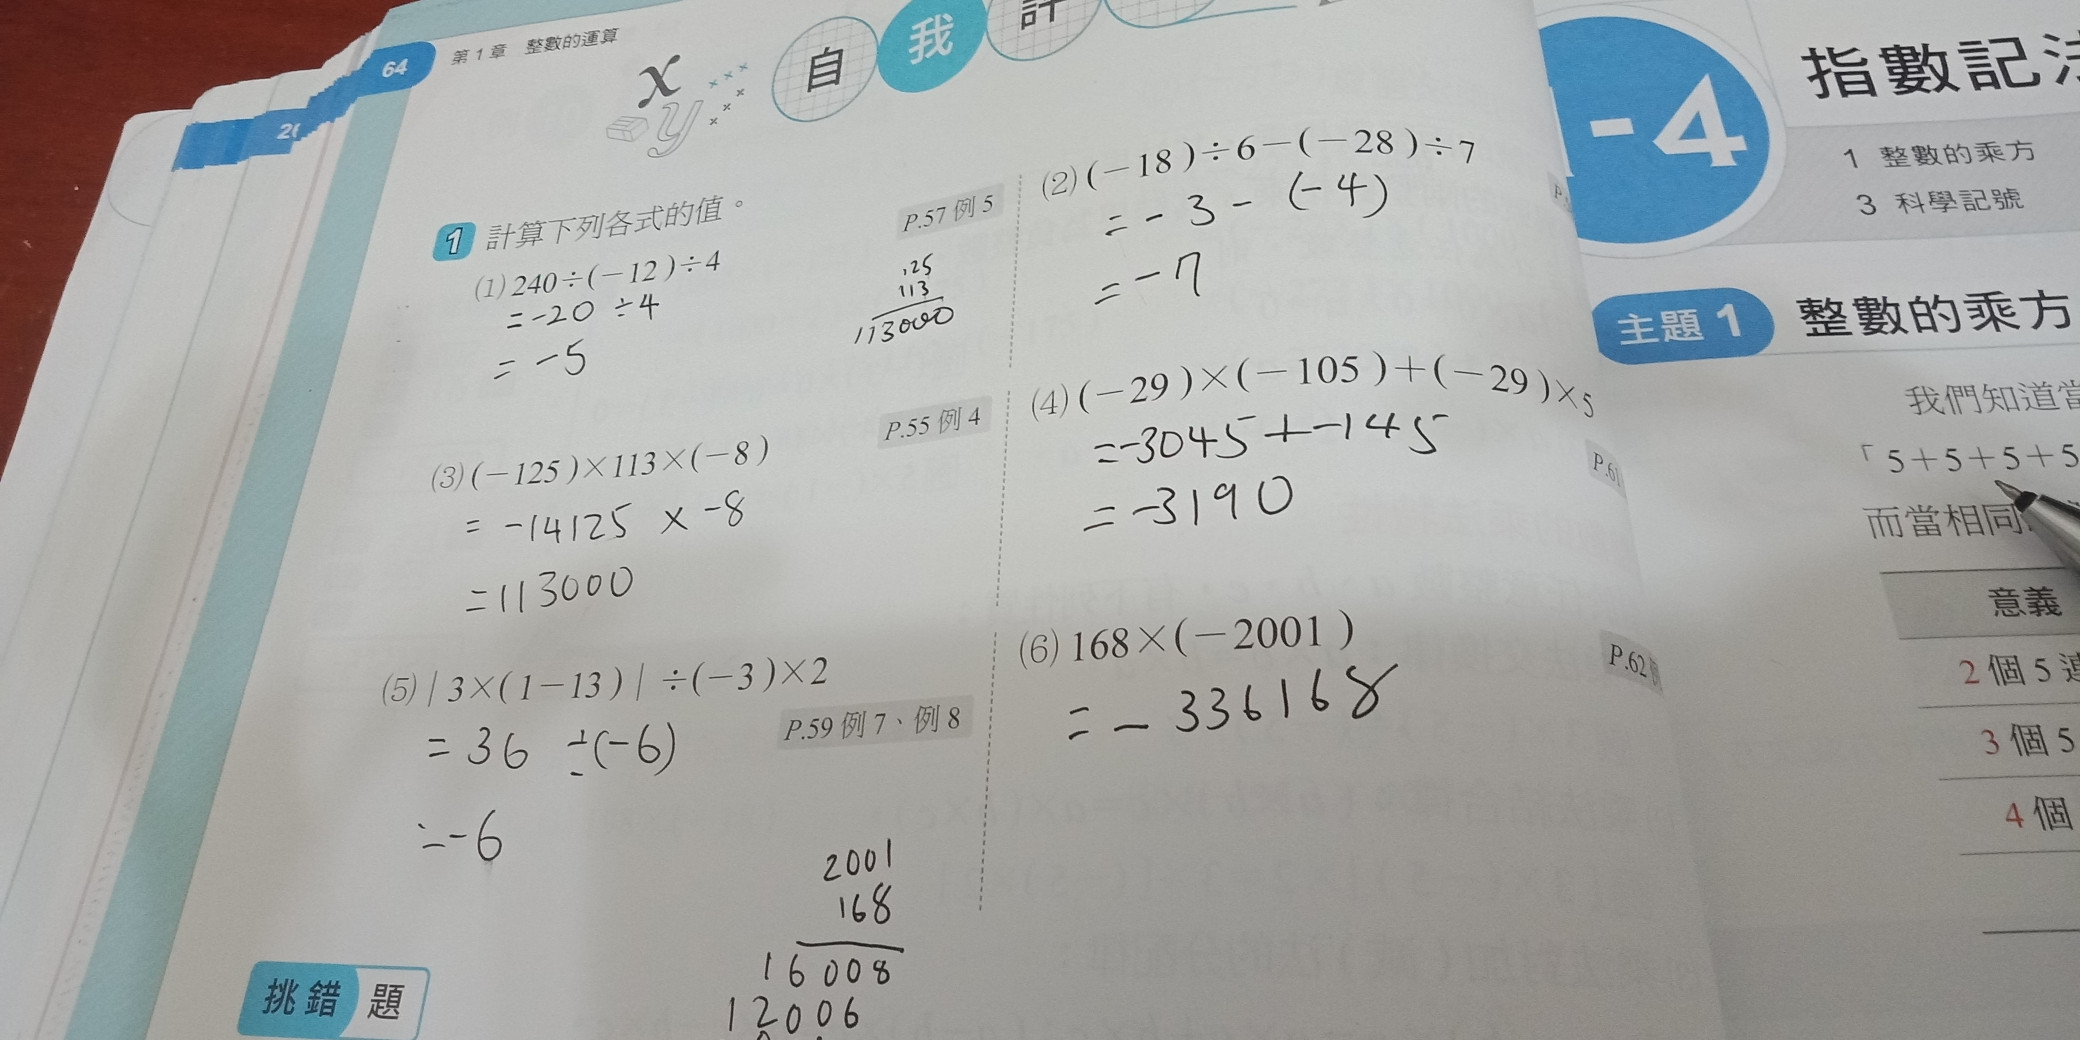 64 第1章 整數的運算
x y
自我計
1 計算下列各式的值。
P.57 例 5
(1) 240÷(-12)÷4
=-20 ÷4
= -5
125
113
113000
(2) (-18)÷6-(-28)÷7
= - 3 - (-4)
= -7
P.55 例 4
(3) (-125)×113×(-8)
= -14125 × -8
=113000
(4) (-29)×(-105)+(-29)×5
=-3045+-145
=-3190
P.61
(5) | 3×(1-13) | ÷(-3)×2
= 36 ÷(-6)
=-6
P.59 例 7、例 8
(6) 168×(-2001)
= - 336168
P.62
2001
168
16008
12006
挑錯題
-4 指數記法
1 整數的乘方
3 科學記號
主題 1 整數的乘方
我們知道當
「5+5+5+5
而當相同
意義
2 個 5 連
3 個 5
4 個